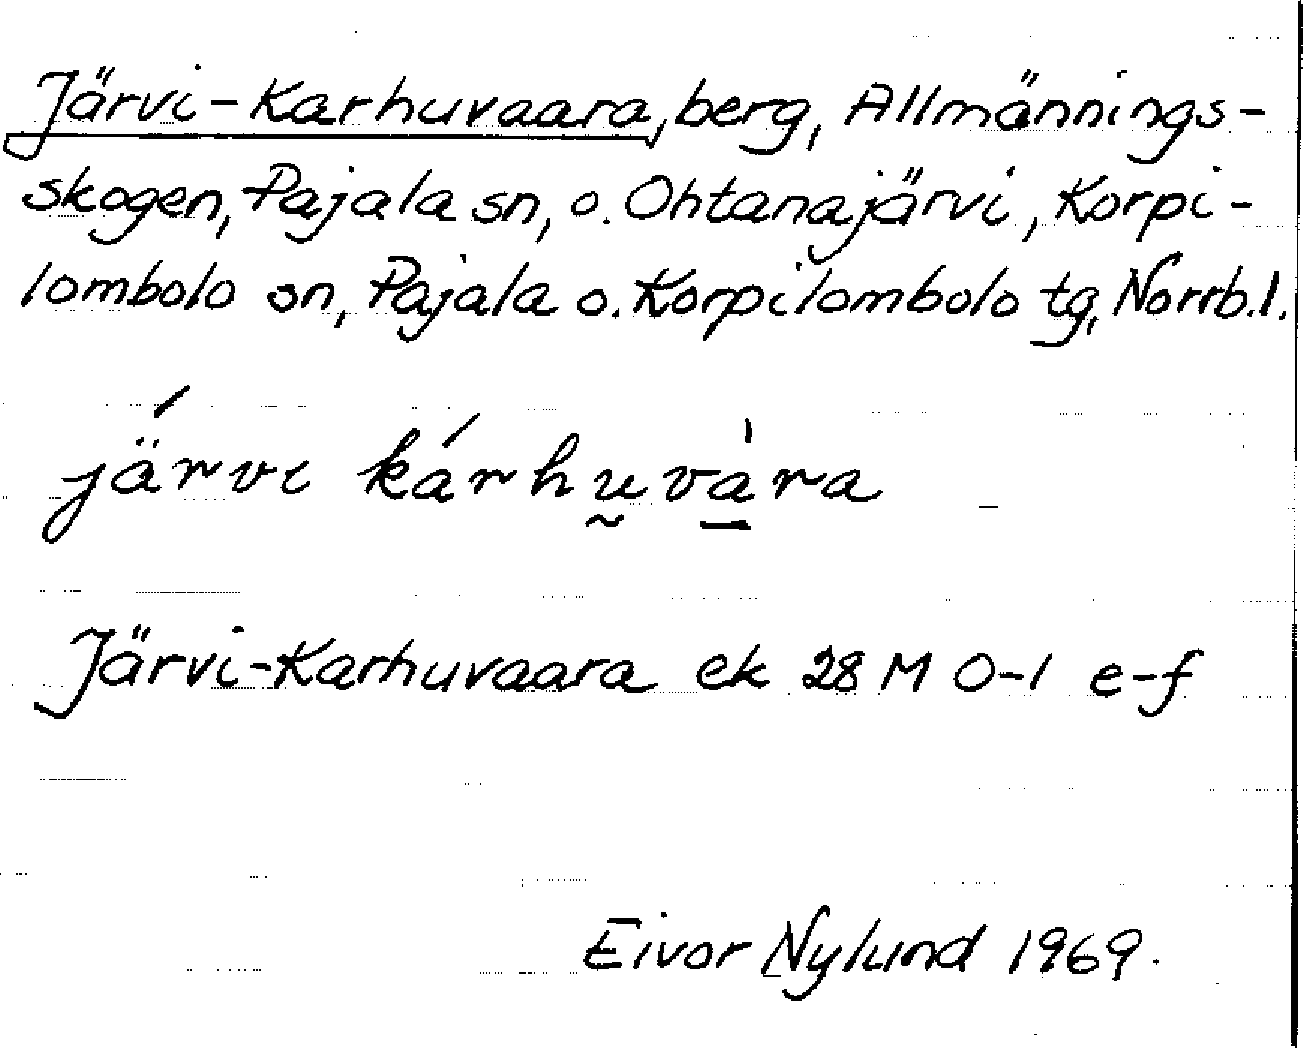 Järvi-Karhuvaara, berg, Allmännings-
skogen, Pajala sn, o. Ohtanajärvi, Korpi-
lombolo sn, Pajala o. Korpilombolo tg, Norrb.l.
jä́rvi kárhṵvà̱ra
Järvi-Karhuvaara ek 28 M 0-1 e-f
Eivor Nylund 1969.